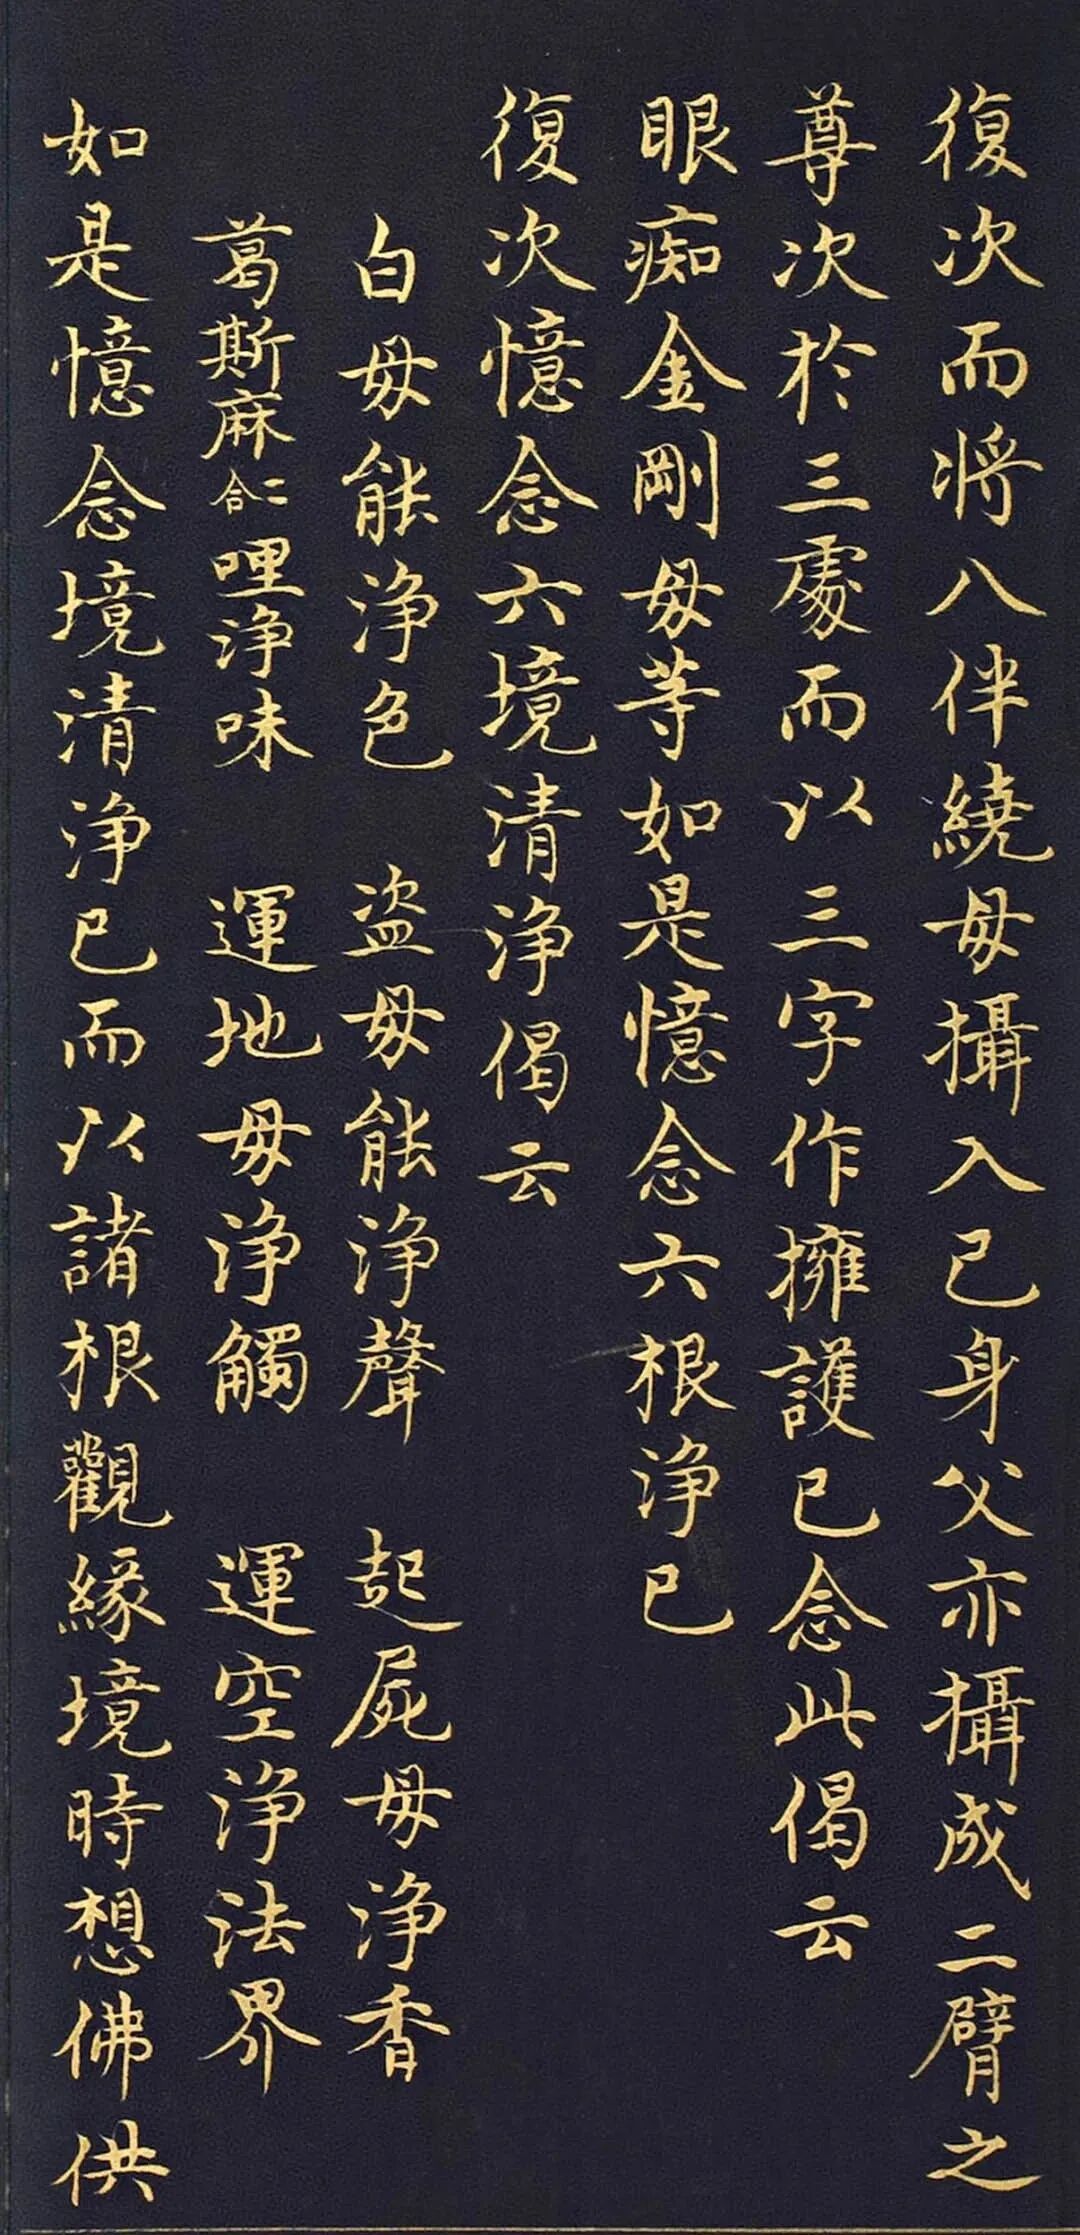 復次而将八伴繞母攝入已身父亦攝成二臂之
尊次於三處而以三字作擁護已念此偈云
眼痴金剛母等如是憶念六根浄已
復次憶念六境清浄偈云
白母能浄色 盗母能浄聲 起屍母浄香
葛斯麻二合哩浄味 運地母浄觸 運空浄法界
如是憶念境清浄已而以諸根觀緣境時想佛供